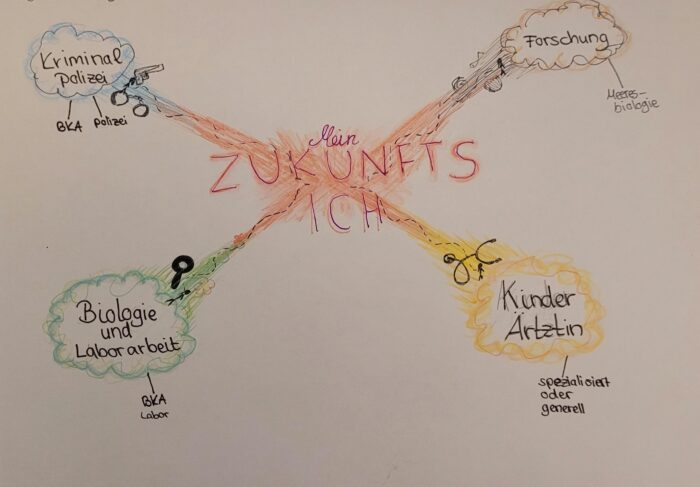 Kriminal
polizei
BKA
polizei
Forschung
Meeres-
biologie
Mein
ZUKUNFTS
ICH
Biologie
und
Laborarbeit
BKA
Labor
Kinder
Ärtztin
spezialisiert
oder
generell